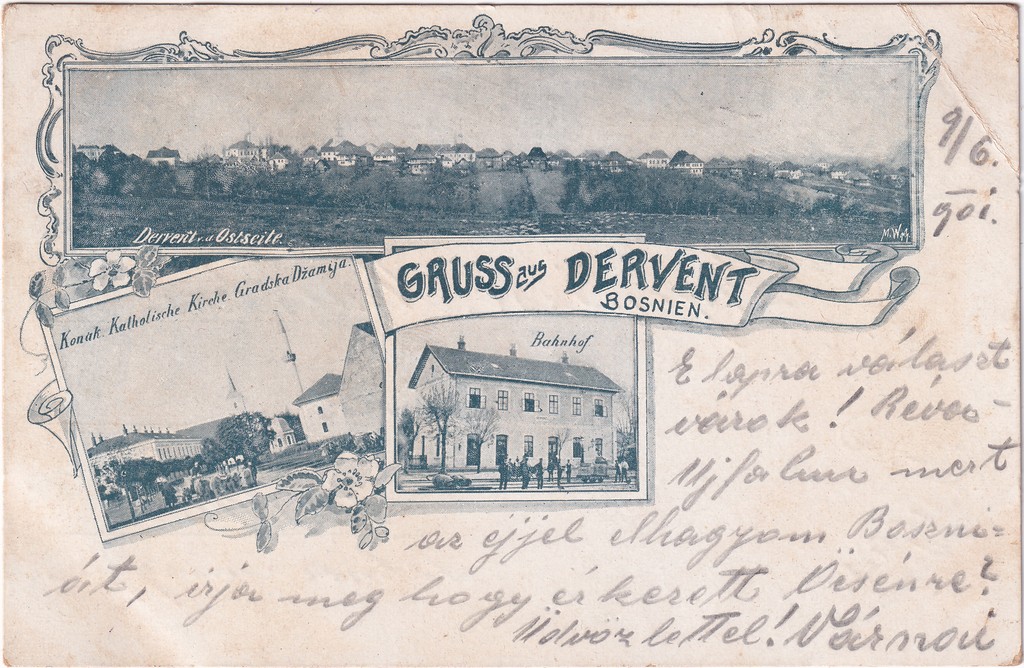 9/6.
901.
Dervent v. d Ostseite.
GRUSS aus DERVENT
BOSNIEN.
Konak. Katholische Kirche. Gradska Džamija.
Bahnhof
E lapra választ
várok! Réva-
Ujfalur mert
az éjjel elhagyom Boszni-
át, irja meg hogy érkezett
Üdvözlettel!